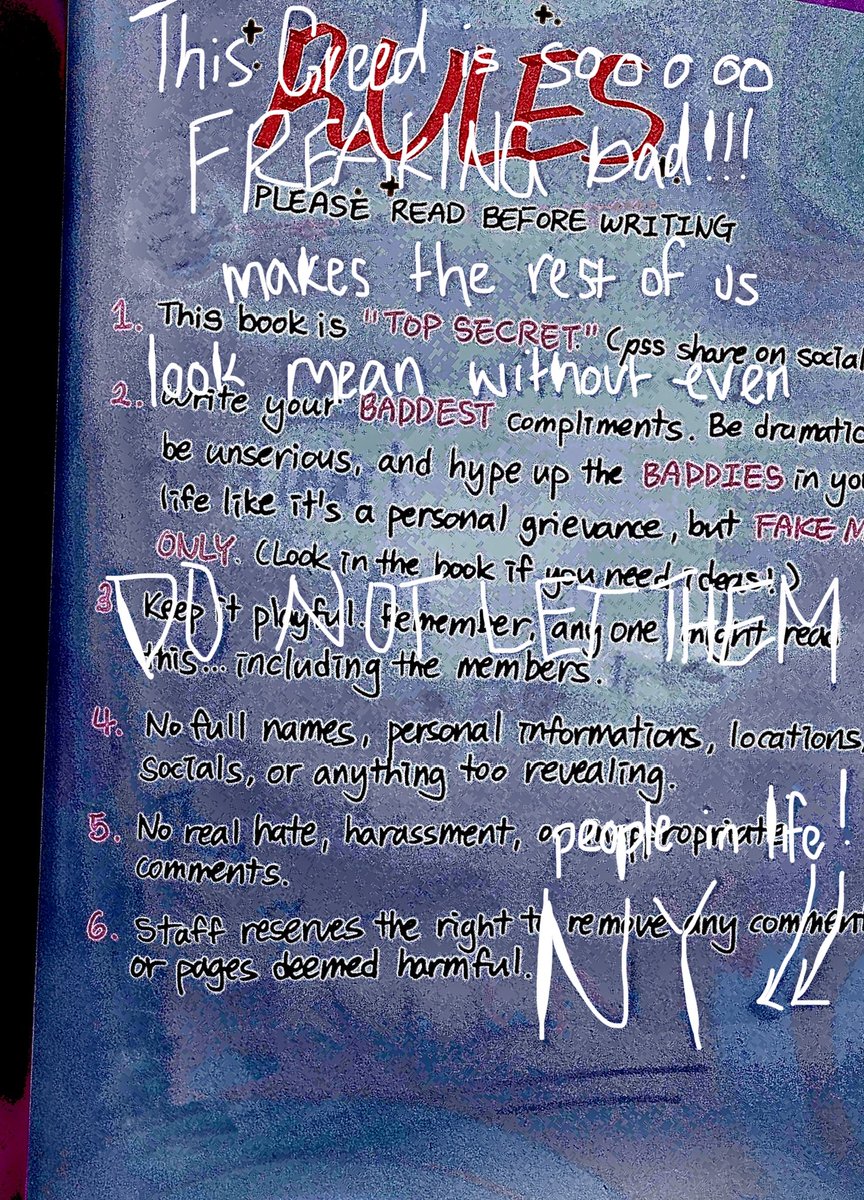 This Greed is sooooo
RULES
FREAKING bad!!!
PLEASE READ BEFORE WRITING
makes the rest of us
1. This book is "TOP SECRET." (pss share on social
look mean without even
2. Write your BADDEST compliments. Be dramatic
be unserious, and hype up the BADDIES in you
life like it's a personal grievance, but FAKE M
ONLY. (Look in the book if you need ideas!)
DO NOT LET THEM
3 Keep it playful. Remember, anyone might read
this... including the members.
4. No full names, personal informations, locations,
socials, or anything too revealing.
people in life!
5. No real hate, harassment, or inappropriate
comments.
NY
6. Staff reserves the right to remove any comment
or pages deemed harmful.